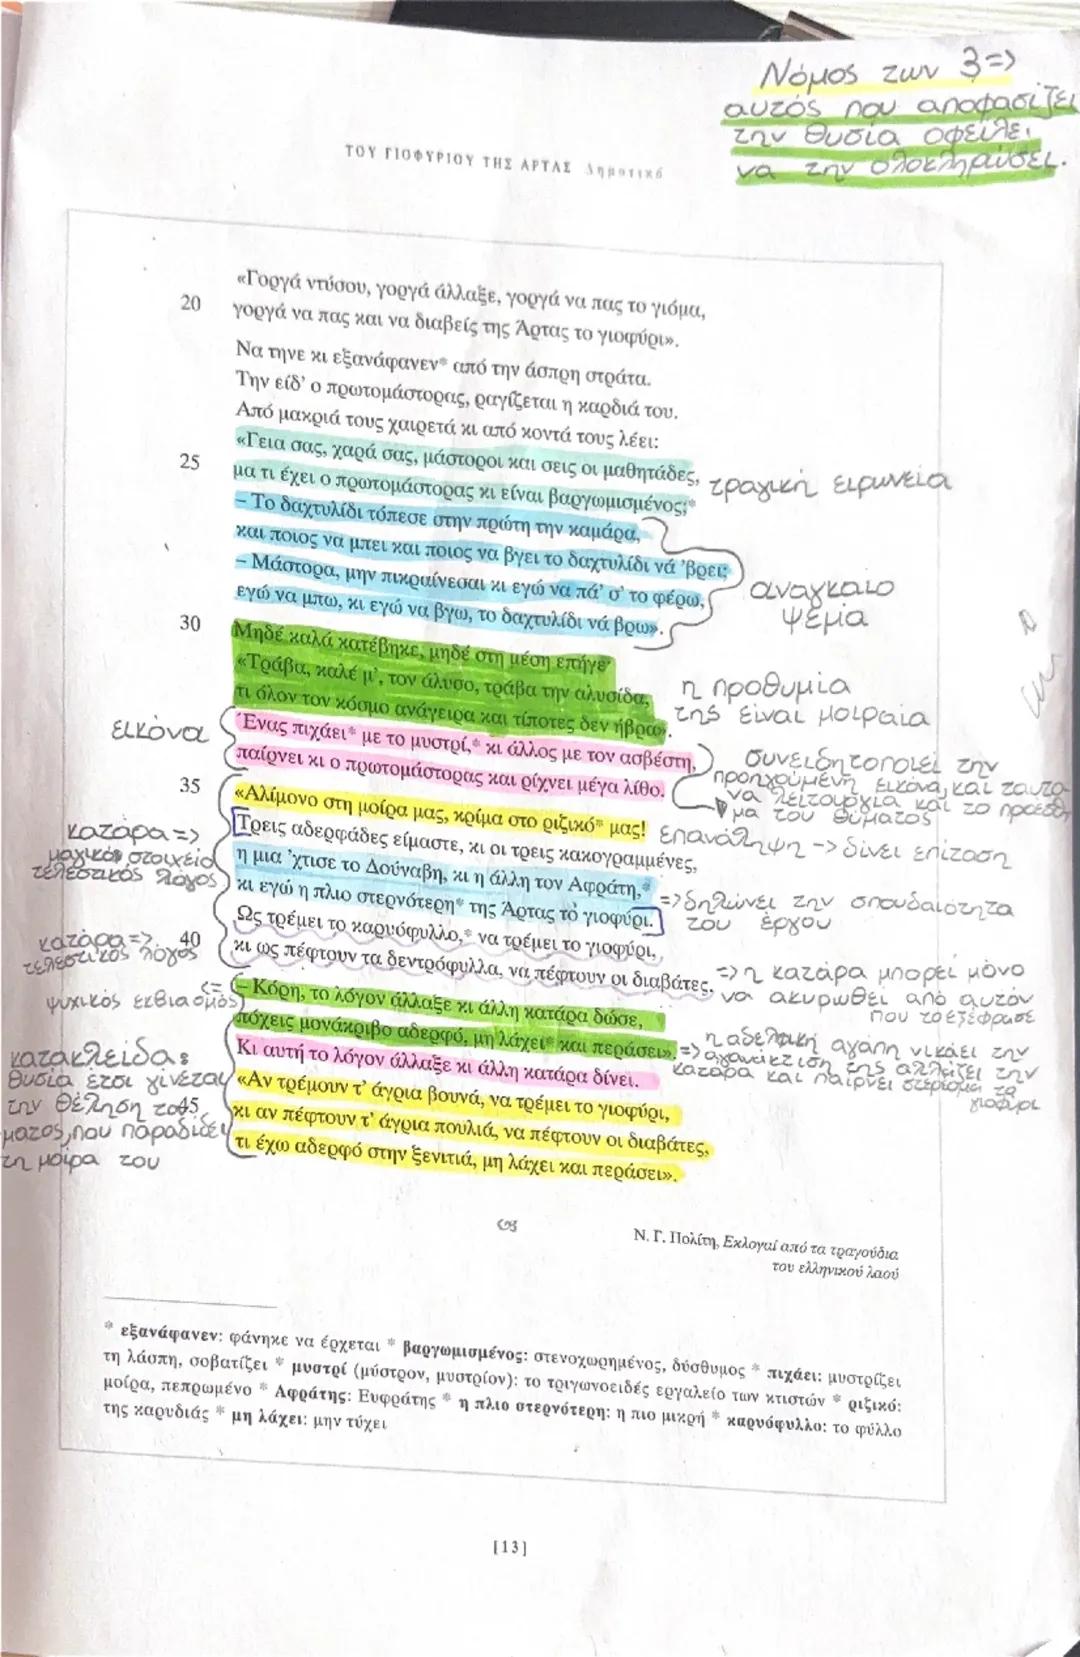 Νόμος των 3=>
αυτός που αποφασίζει
την θυσία οφείλει
να την ολοκληρώσει.
ΤΟΥ ΓΙΟΦΥΡΙΟΥ ΤΗΣ ΑΡΤΑΣ Δημοτικό
«Γοργά ντύσου, γοργά άλλαξε, γοργά να πας το γιόμα,
20 γοργά να πας και να διαβείς της Άρτας το γιοφύρι».
Να τηνε κι εξανάφανεν* από την άσπρη στράτα.
Την είδ' ο πρωτομάστορας, ραγίζεται η καρδιά του.
Από μακριά τους χαιρετά κι από κοντά τους λέει:
«Γεια σας, χαρά σας, μάστοροι και σεις οι μαθητάδες,
25 μα τι έχει ο πρωτομάστορας κι είναι βαργωμισμένος;* τραγική ειρωνεία
– Το δαχτυλίδι τόπεσε στην πρώτη την καμάρα,
και ποιος να μπει και ποιος να βγει το δαχτυλίδι νά 'βρει;
– Μάστορα, μην πικραίνεσαι κι εγώ να πά' σ' το φέρω,
εγώ να μπω, κι εγώ να βγω, το δαχτυλίδι νά βρω».
αναγκαίο
ψέμα
30 Μηδέ καλά κατέβηκε, μηδέ στη μέση επήγε·
«Τράβα, καλέ μ', τον άλυσο, τράβα την αλυσίδα,
τι όλον τον κόσμο ανάγειρα και τίποτες δεν ήβρα».
η προθυμία
της είναι μοιραία
εικόνα
Ένας πιχάει* με το μυστρί,* κι άλλος με τον ασβέστη,
παίρνει κι ο πρωτομάστορας και ρίχνει μέγα λίθο.
συνειδητοποιεί την
προηγούμενη εικόνα, και
να λειτουργία και το
μα του θύματος
35 «Αλίμονο στη μοίρα μας, κρίμα στο ριζικό* μας!
επανάληψη -> δίνει επίταση
κατάρα=>
μαγικό στοιχείο
τελεστικός λόγος
Τρεις αδερφάδες είμαστε, κι οι τρεις κακογραμμένες,
η μια 'χτισε το Δούναβη, κι η άλλη τον Αφράτη,*
κι εγώ η πλιο στερνότερη* της Άρτας το γιοφύρι.
=>δηλώνει την σπουδαιότητα
του έργου
Ως τρέμει το καρυόφυλλο,* να τρέμει το γιοφύρι,
40 κι ως πέφτουν τα δεντρόφυλλα, να πέφτουν οι διαβάτες.
κατάρα=>
τελεστικός λόγος
=>η κατάρα μπορεί μόνο
να ακυρωθεί από αυτόν
που το εξέφρασε
ψυχικός εκβιασμός
– Κόρη, το λόγον άλλαξε κι άλλη κατάρα δώσε,
πόχεις μονάκριβο αδερφό, μη λάχει* και περάσει».
Κι αυτή το λόγον άλλαξε κι άλλη κατάρα δίνει.
=> η αδελφική αγάπη νικάει την
αγανάκτιση της αλλάζει την
κατάρα και παίρνει στέρεομα το
γιοφύρι
κατακλείδα:
θυσία έτσι γίνεται
την θέληση του
ματος, που παραδίδει
τη μοίρα του
45 «Αν τρέμουν τ' άγρια βουνά, να τρέμει το γιοφύρι,
κι αν πέφτουν τ' άγρια πουλιά, να πέφτουν οι διαβάτες,
τι έχω αδερφό στην ξενιτιά, μη λάχει και περάσει».
Ν. Γ. Πολίτη, Εκλογαί από τα τραγούδια
του ελληνικού λαού
* εξανάφανεν: φάνηκε να έρχεται * βαργωμισμένος: στενοχωρημένος, δύσθυμος * πιχάει: μυστρίζει
τη λάσπη, σοβατίζει * μυστρί (μύστρον, μυστρίον): το τριγωνοειδές εργαλείο των κτιστών * ριζικό:
μοίρα, πεπρωμένο * Αφράτης: Ευφράτης * η πλιο στερνότερη: η πιο μικρή * καρυόφυλλο: το φύλλο
της καρυδιάς * μη λάχει: μην τύχει
[13]